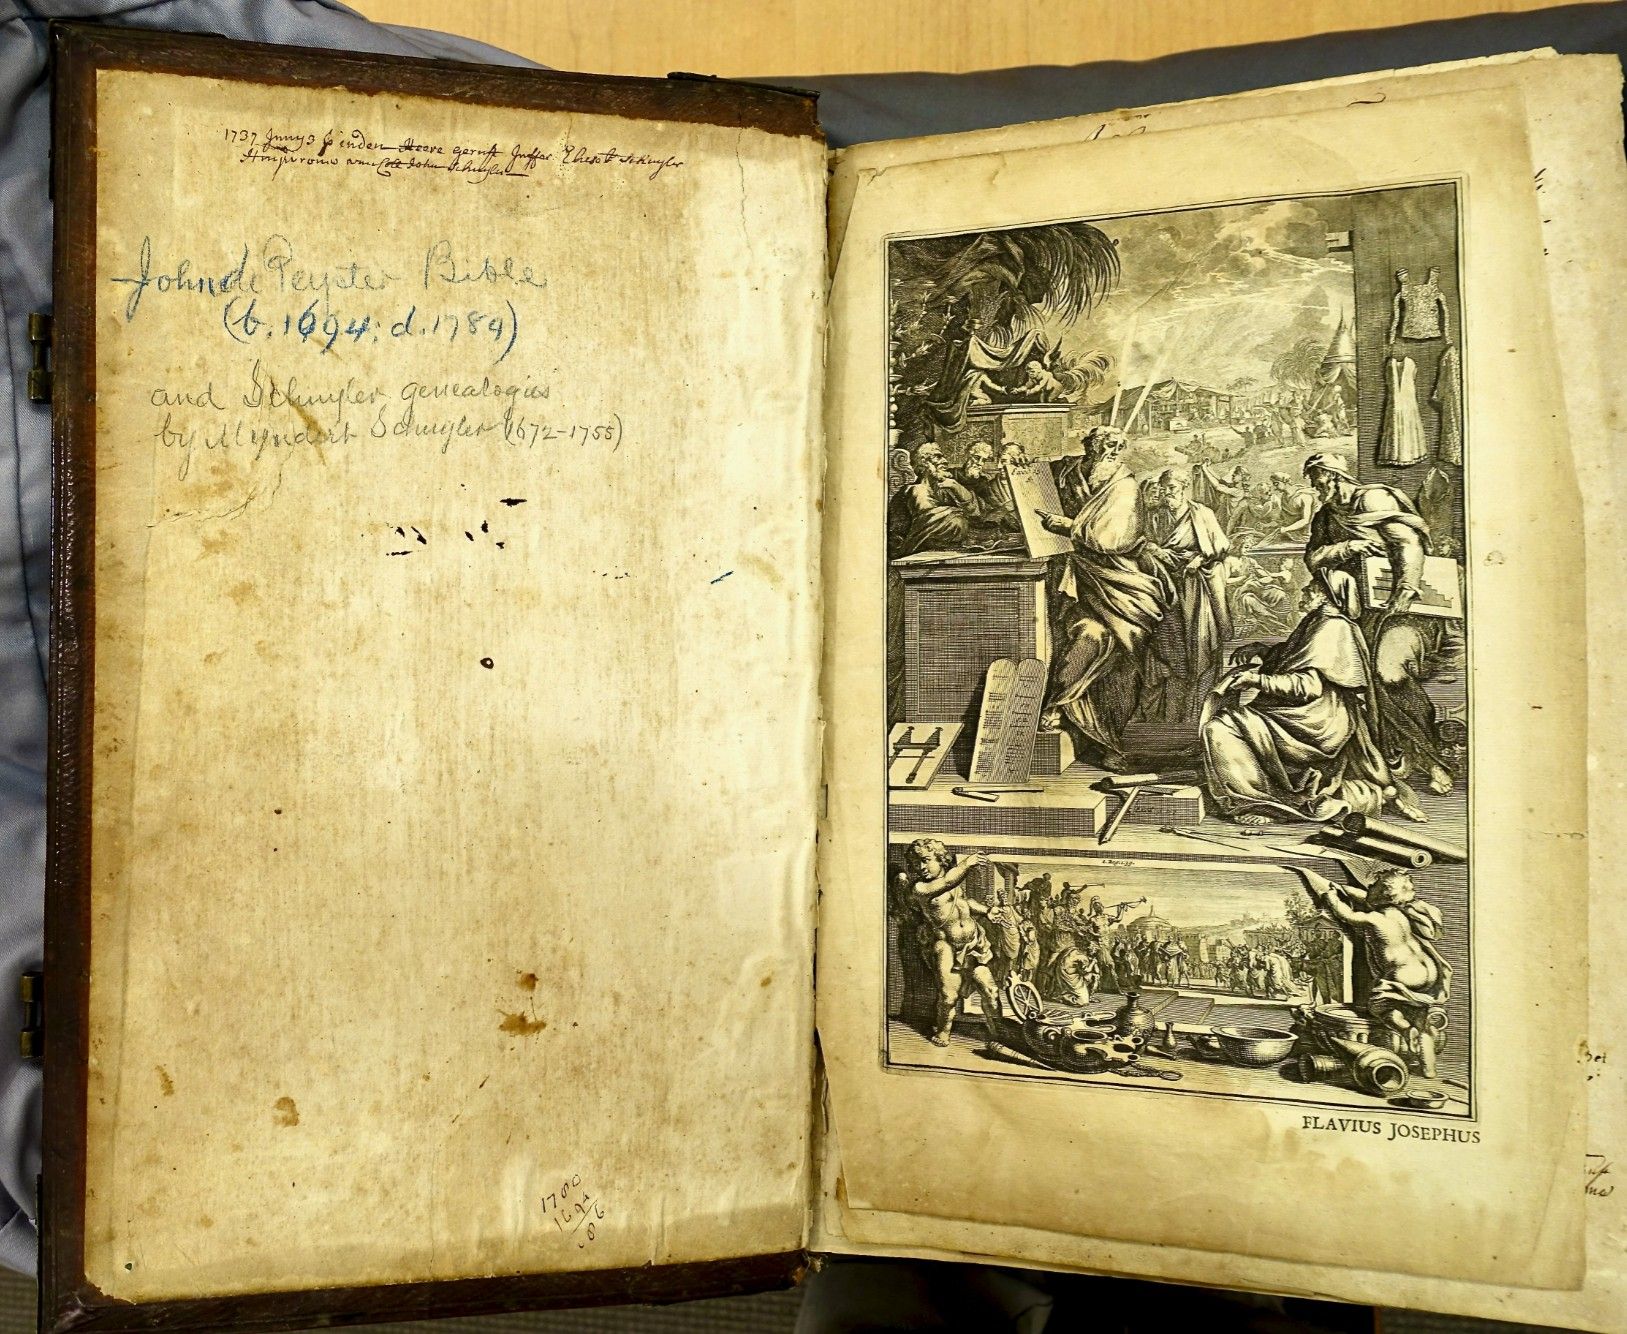 1737 Junÿ 3 is inden Heere gerust Juffer Elesebt Schuyler
Huysvrouw van Coll John Schuyler
John de Peyster Bible
(b. 1694; d. 1789)
and Schuyler genealogies
by Myndert Schuyler (1672-1755)
1780
1694
86
FLAVIUS JOSEPHUS